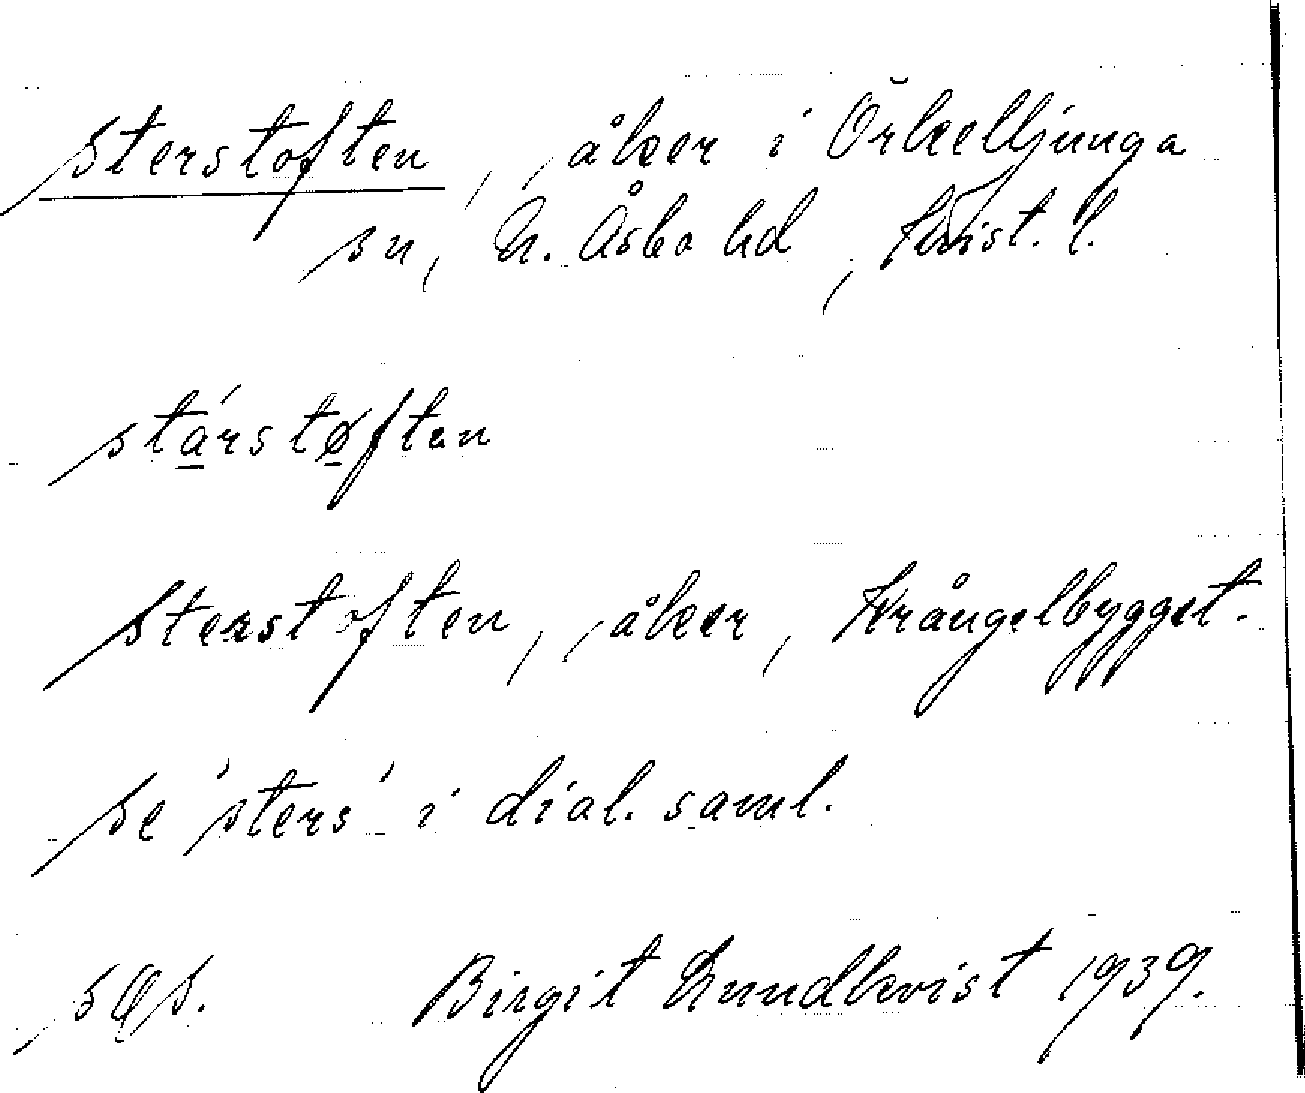 Sterstoften, åker i Örkelljunga
sn, N. Åsbo hd, Krist. l.
stárstøften
Sterstoften, åker, Krångelbygget.
Se 'sters' i dial. saml.
Birgit Lundkvist 1939.